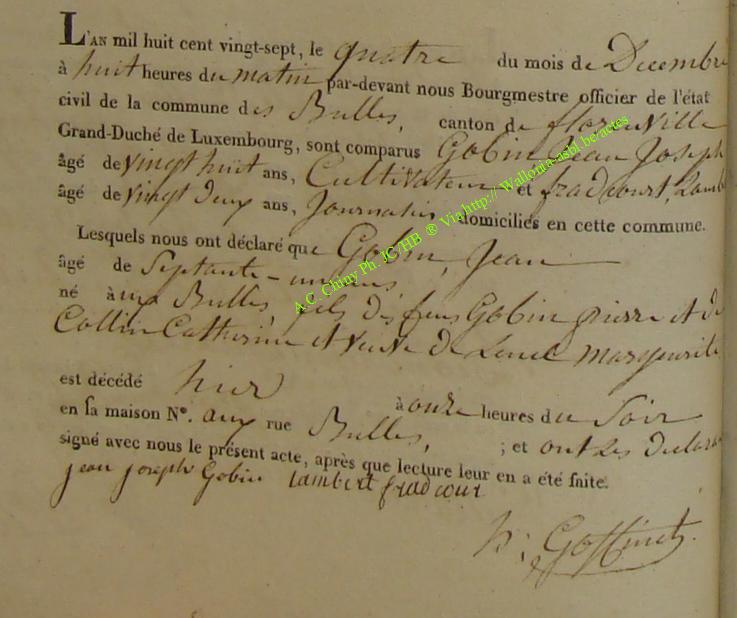 L'AN mil huit cent vingt-sept, le quatre du mois de Decembre
à huit heures du matin par-devant nous Bourgmestre officier de l'état
civil de la commune des Bulles, canton de florenville
Grand-Duché de Luxembourg, sont comparus Gobin Jean Joseph
âgé de vingt huit ans, Cultivateur et fradcourt, Lamb
âgé de vingt deux ans, Journalier, domiciliés en cette commune.
Lesquels nous ont déclaré que Gobin, Jean
âgé de Septante-un ans
né à aux Bulles, fils des feus Gobin pierre et de
Collin Catherine et veuve de Marguerite
est décédé hier à onze heures du Soir
en sa maison N°. aux rue Bulles, ; et ont les declarans
signé avec nous le présent acte, après que lecture leur en a été faite.
jean joseph Gobin lambert fradcour
h: Goffinet
A.C. Chiny Ph. JC/HB ® Via http:// Wallonia-asbl.be/actes